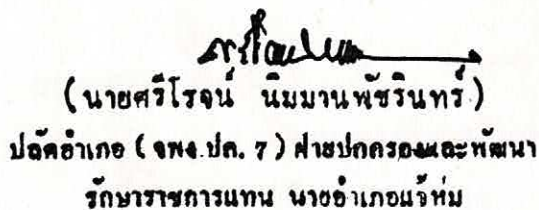 (นายศรีโรจน์ นิมมานพัชรินทร์)
ปลัดอำเภอ (จพง.ปค. 7) ฝ่ายปกครองและพัฒนา
รักษาราชการแทน นายอำเภอแจ้ห่ม